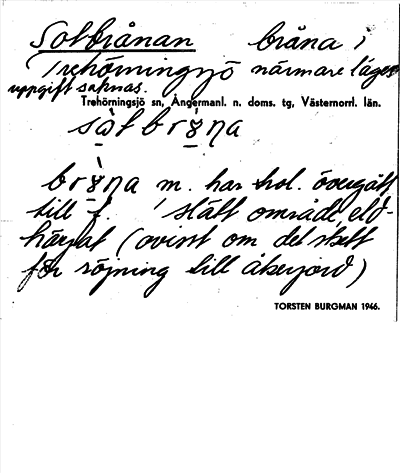 Sotbrånan bråna i
Trehörningsjö närmare läges
uppgift saknas.
Trehörningsjö sn, Ångermanl. n. doms. tg, Västernorrl. län.
bråna m. har trol. övergått
till f. 'slätt område, eld-
härjat (ovisst om det skett
för röjning till åkerjord)
TORSTEN BURGMAN 1946.